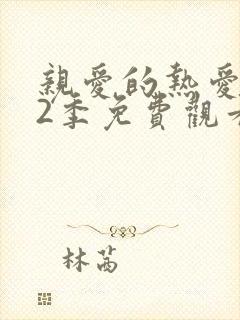 親愛的熱愛
2季免費觀
林茜